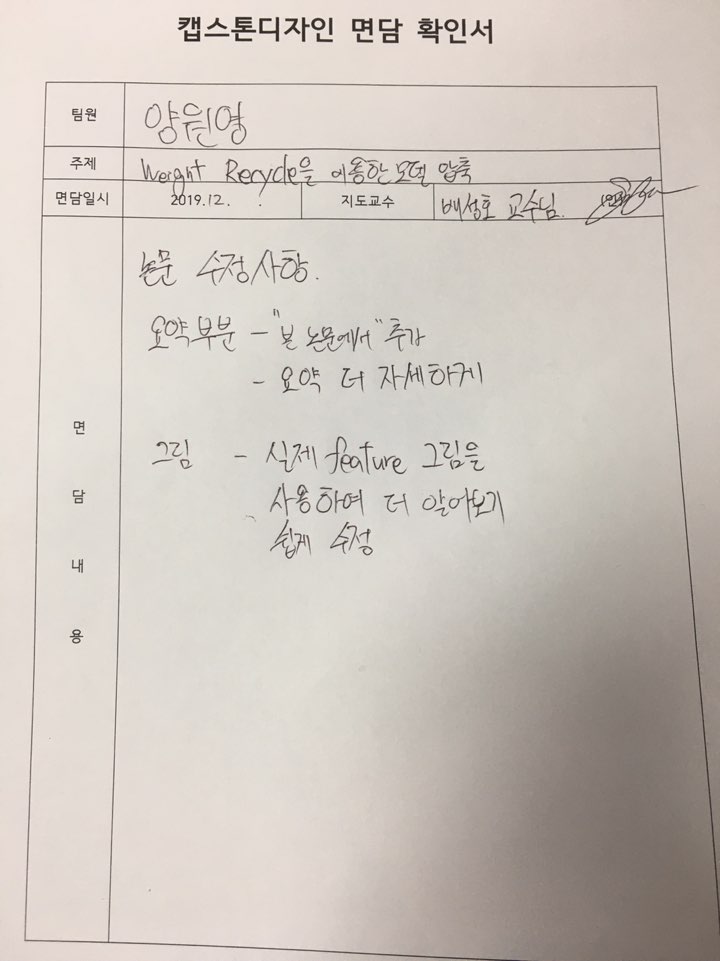 캡스톤디자인 면담 확인서
팀원 양원영
주제 Weight Recycle을 이용한 모델 압축
면담일시 2019.12. . 지도교수 배성호 교수님. (인)
면담내용
논문 수정사항.
요약부분 - "본 논문에서" 추가
- 요약 더 자세하게
그림 - 실제 feature 그림을
사용하여 더 알아보기
쉽게 수정